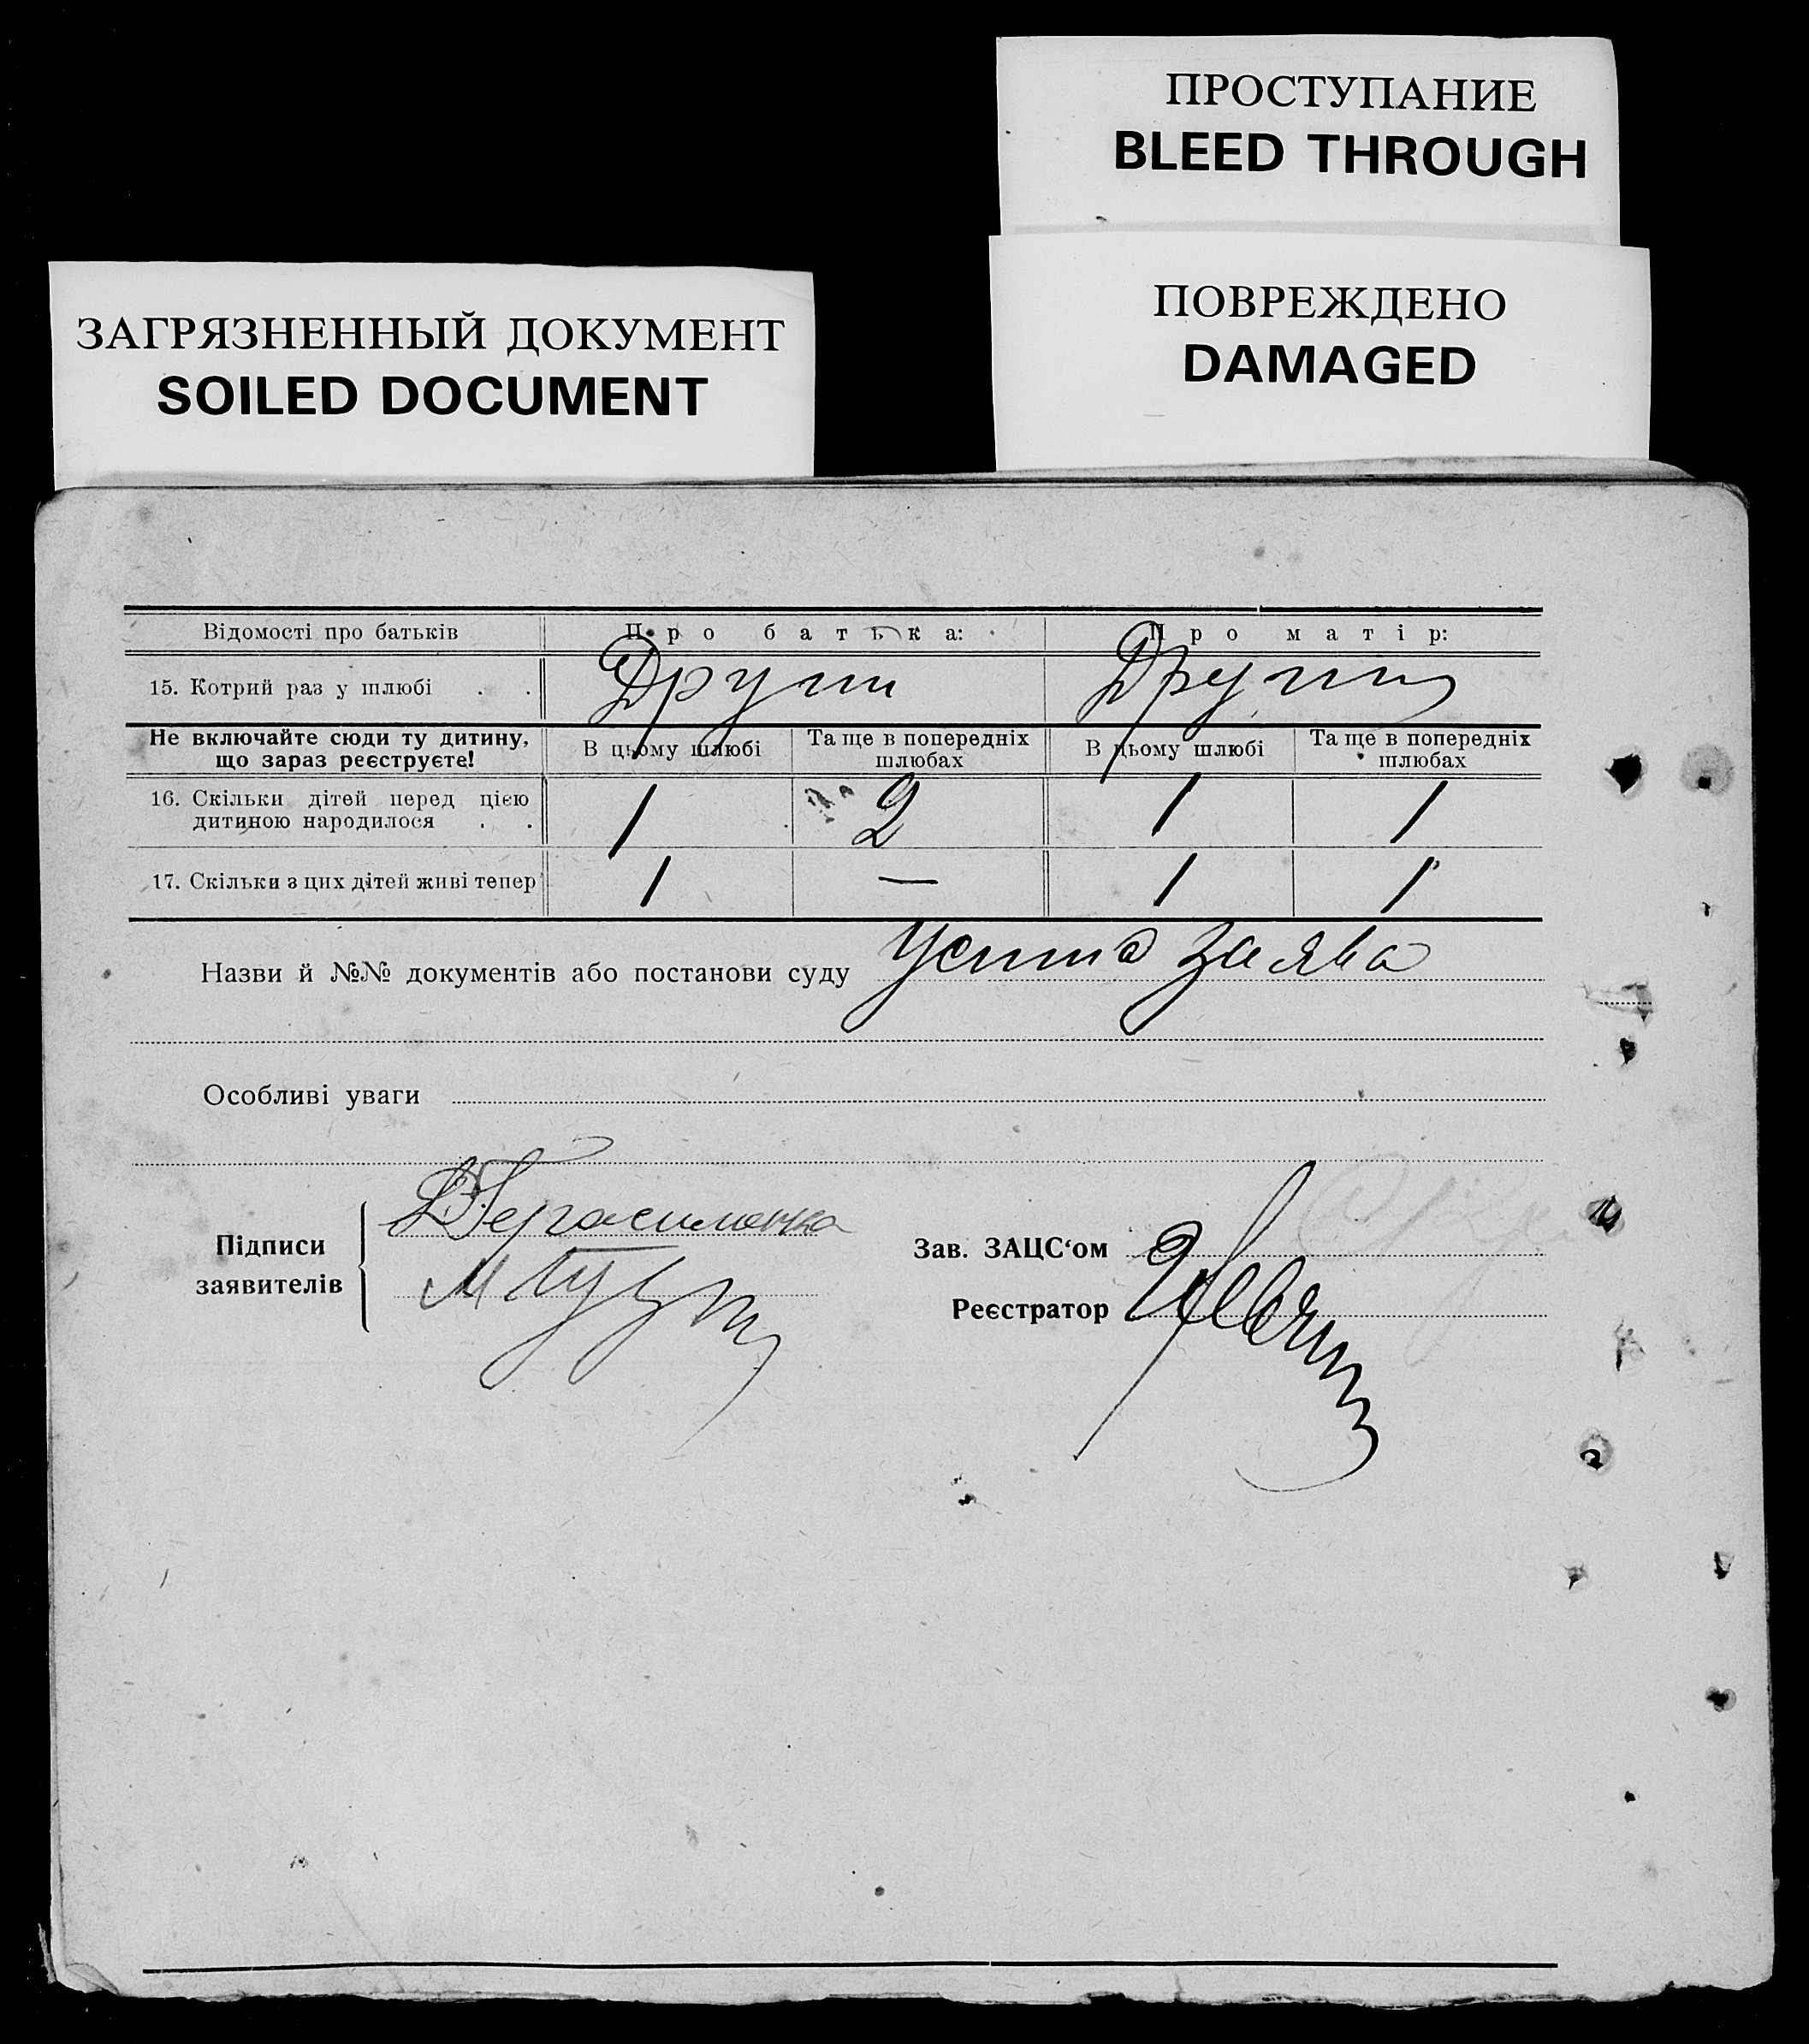 ПРОСТУПАНИЕ
BLEED THROUGH
ПОВРЕЖДЕНО
DAMAGED
ЗАГРЯЗНЕННЫЙ ДОКУМЕНТ
SOILED DOCUMENT
Відомості про батьків Про батька: Про матір:
15. Котрий раз у шлюбі . . Други Други
Не включайте сюди ту дитину, що зараз реєструєте! В цьому шлюбі Та ще в попередніх шлюбах В цьому шлюбі Та ще в попередніх шлюбах
16. Скільки дітей перед цією
дитиною народилося . . 1 2 1 1
17. Скільки з цих дітей живі тепер 1 — 1 1
Назви й №№ документів або постанови суду Усина заява
Особливі уваги
Підписи
заявителів
Зав. ЗАЦС‘ом
Реєстратор